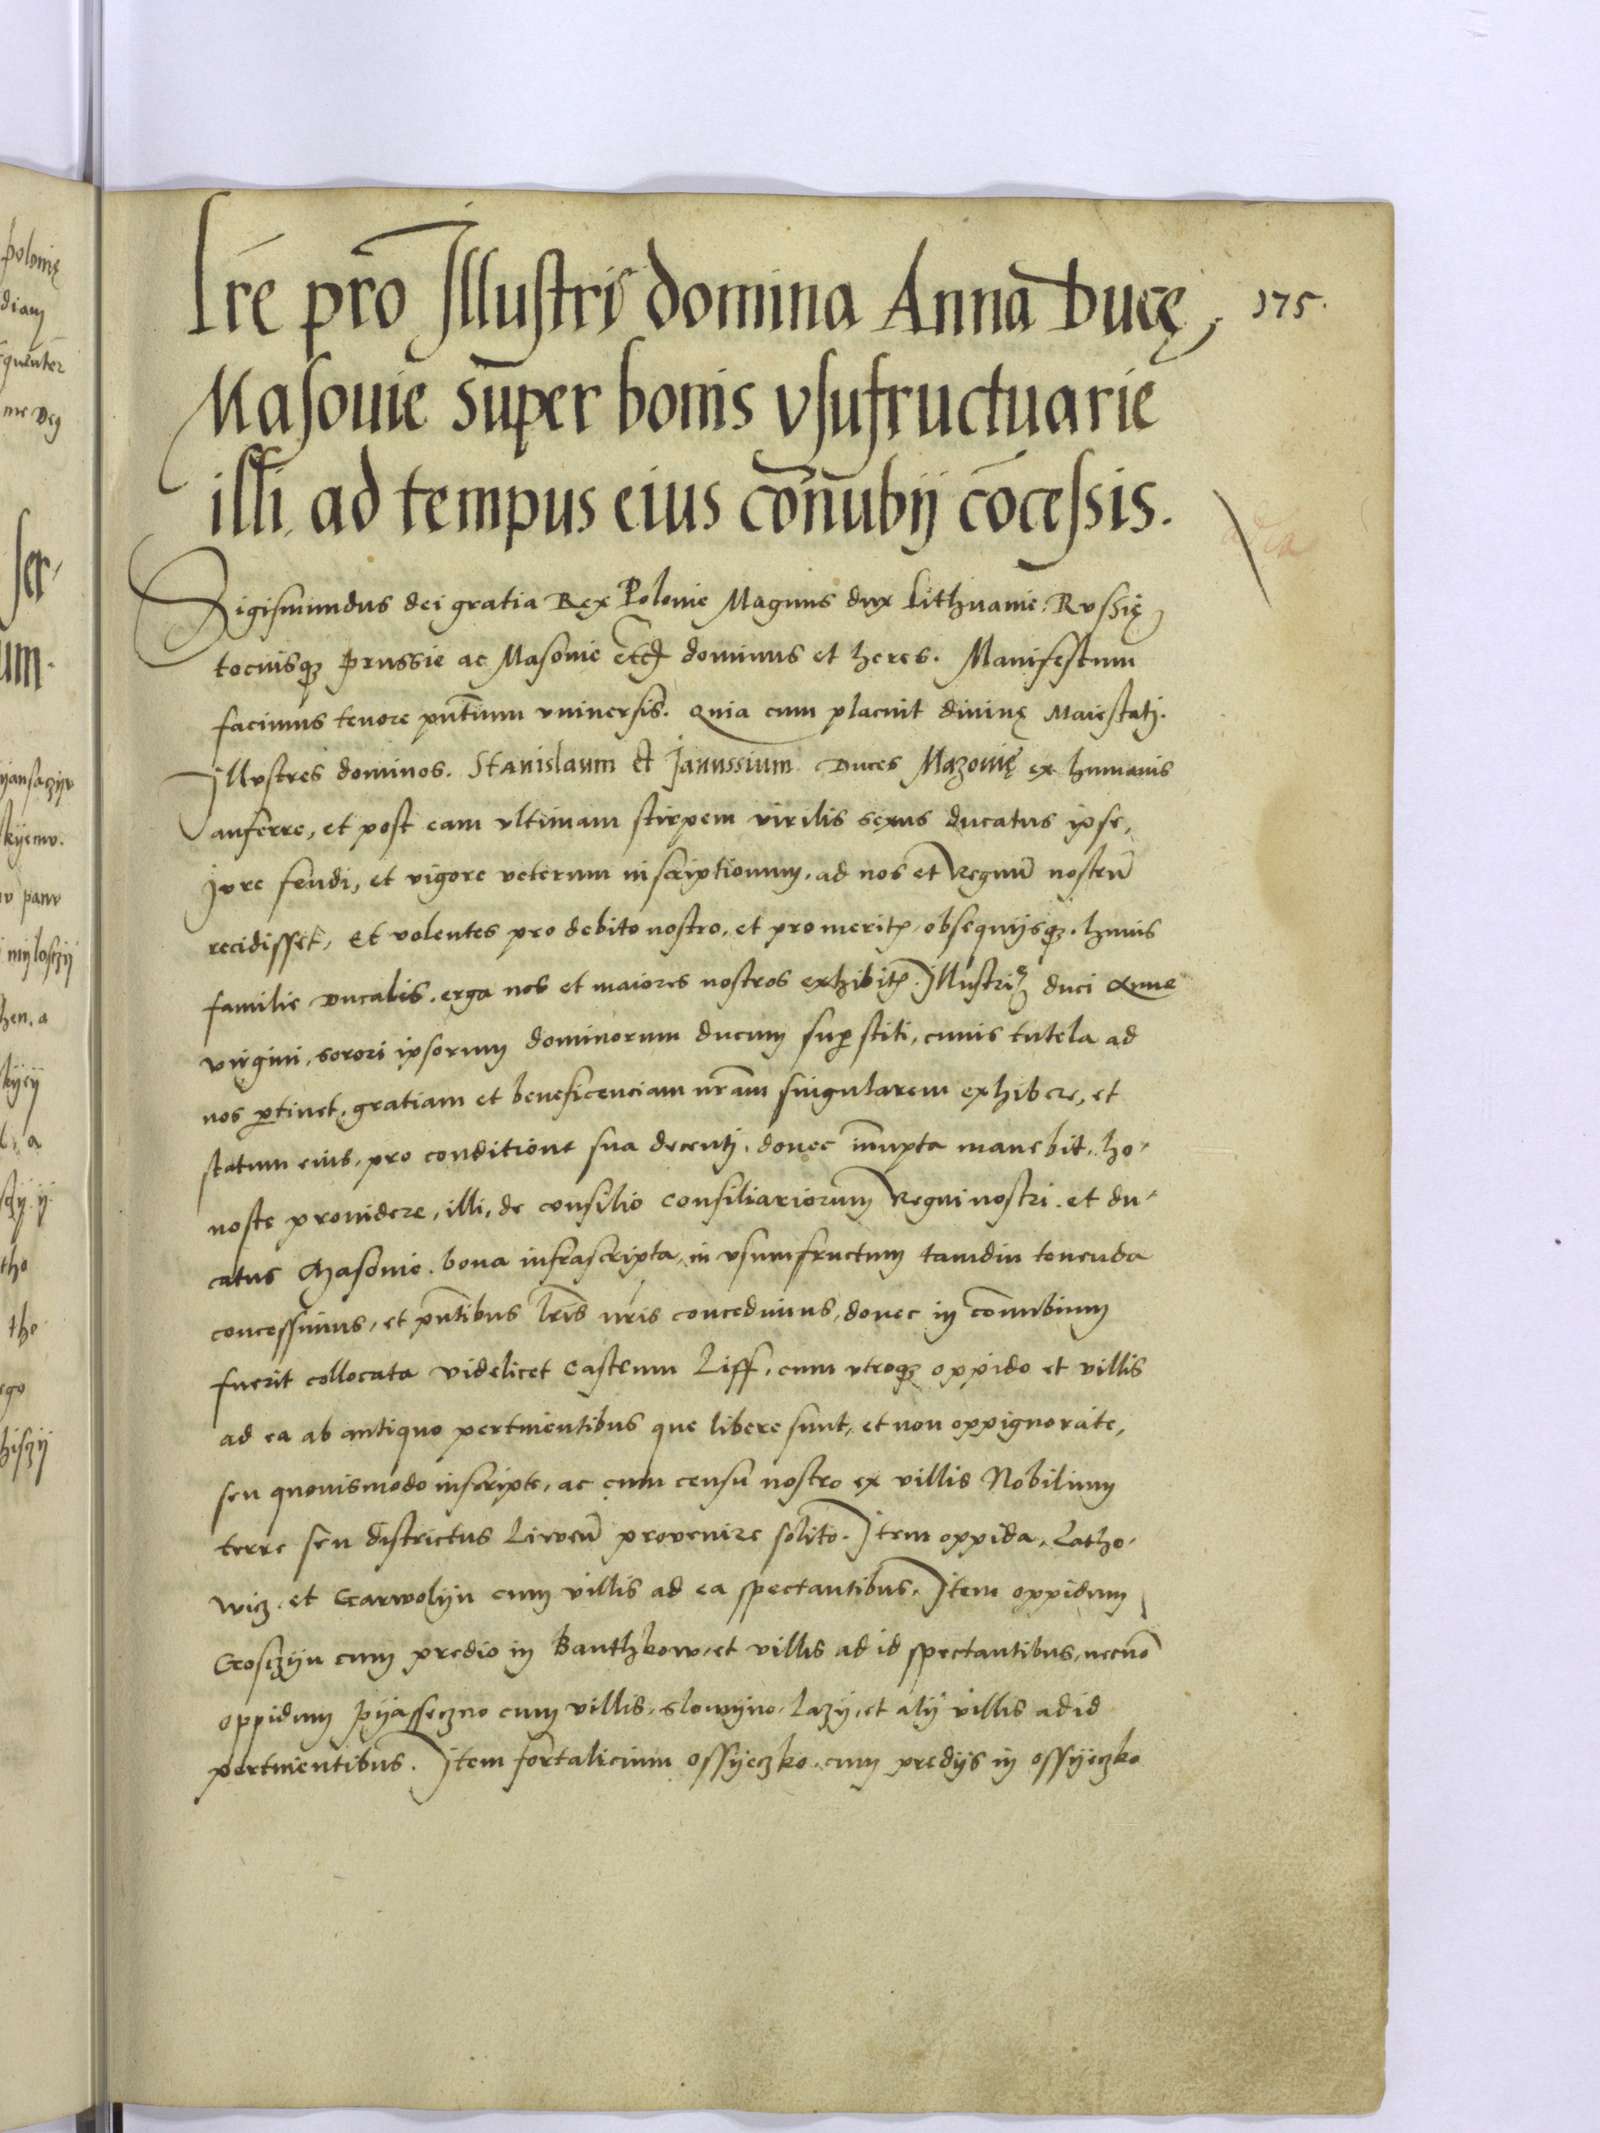 Lre pro Illustri domina Anna Ducę
175.
Masouie super bonis vsufructuarie
illi ad tempus eius cōnubij cōcessis.
Sigismundus dei gratia Rex Polonie Magnus dux Lithuanie Russię
tociusq; Prussie ac Masouie etc̄ dominus et heres. Manifestum
facimus tenore pn̄tium vniuersis. Quia cum placuit diuinę Maiestati.
Illustres dominos. Stanislaum et Janussium Duces Mazouię ex humanis
auferre, et post eam vltimam stirpem virilis sexus ducatus ipse,
Jure feudi, et vigore veterum inscriptionum, ad nos et Regnū nostrū
recidisset, Et volentes pro debito nostro, et pro meritis, obsequijsq; huius
familie Ducalis, erga nos et maiores nostros exhibitis Illustri duci Anne
virgini, sorori ipsorum dominorum ducum sup̱stiti, cuius tutela ad
nos p̱tinet, gratiam et beneficenciam nr̄am singularem exhibere, et
statum eius, pro conditione sua decenti, donec innupta manebit, ho-
neste prouidere, illi, de consilio consiliariorum Regni nostri et du-
catus Masouie bona infrascripta in vsumfructum tamdiu tenenda
concessimus, et pn̄tibus lr̄is nr̄is concedimus, donec in cōnubium
fuerit collocata videlicet castrum Liff, cum vtroq; oppido et villis
ad ea ab antiquo pertinentibus que libere sunt, et non oppignorate,
seu quouismodo inscripte, ac cum censu nostro ex villis Nobilium
terre seu districtus Liwen̄ prouenire solito. Item oppida, Latho-
wicz et Garwolijn cum villis ad ea spectantibus, Item oppidum
Gosczijn cum predio in Banthkow, et villis ad id spectantibus, necnō
oppidum Pijasseczno cum villis, slomijno, Lazij, et alij villis ad id
pertinentibus. Item fortalicium Ossijeczko cum predijs in ossijeczko